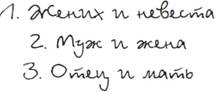 1. Жених и невеста
2. Муж и жена
3. Отец и мать